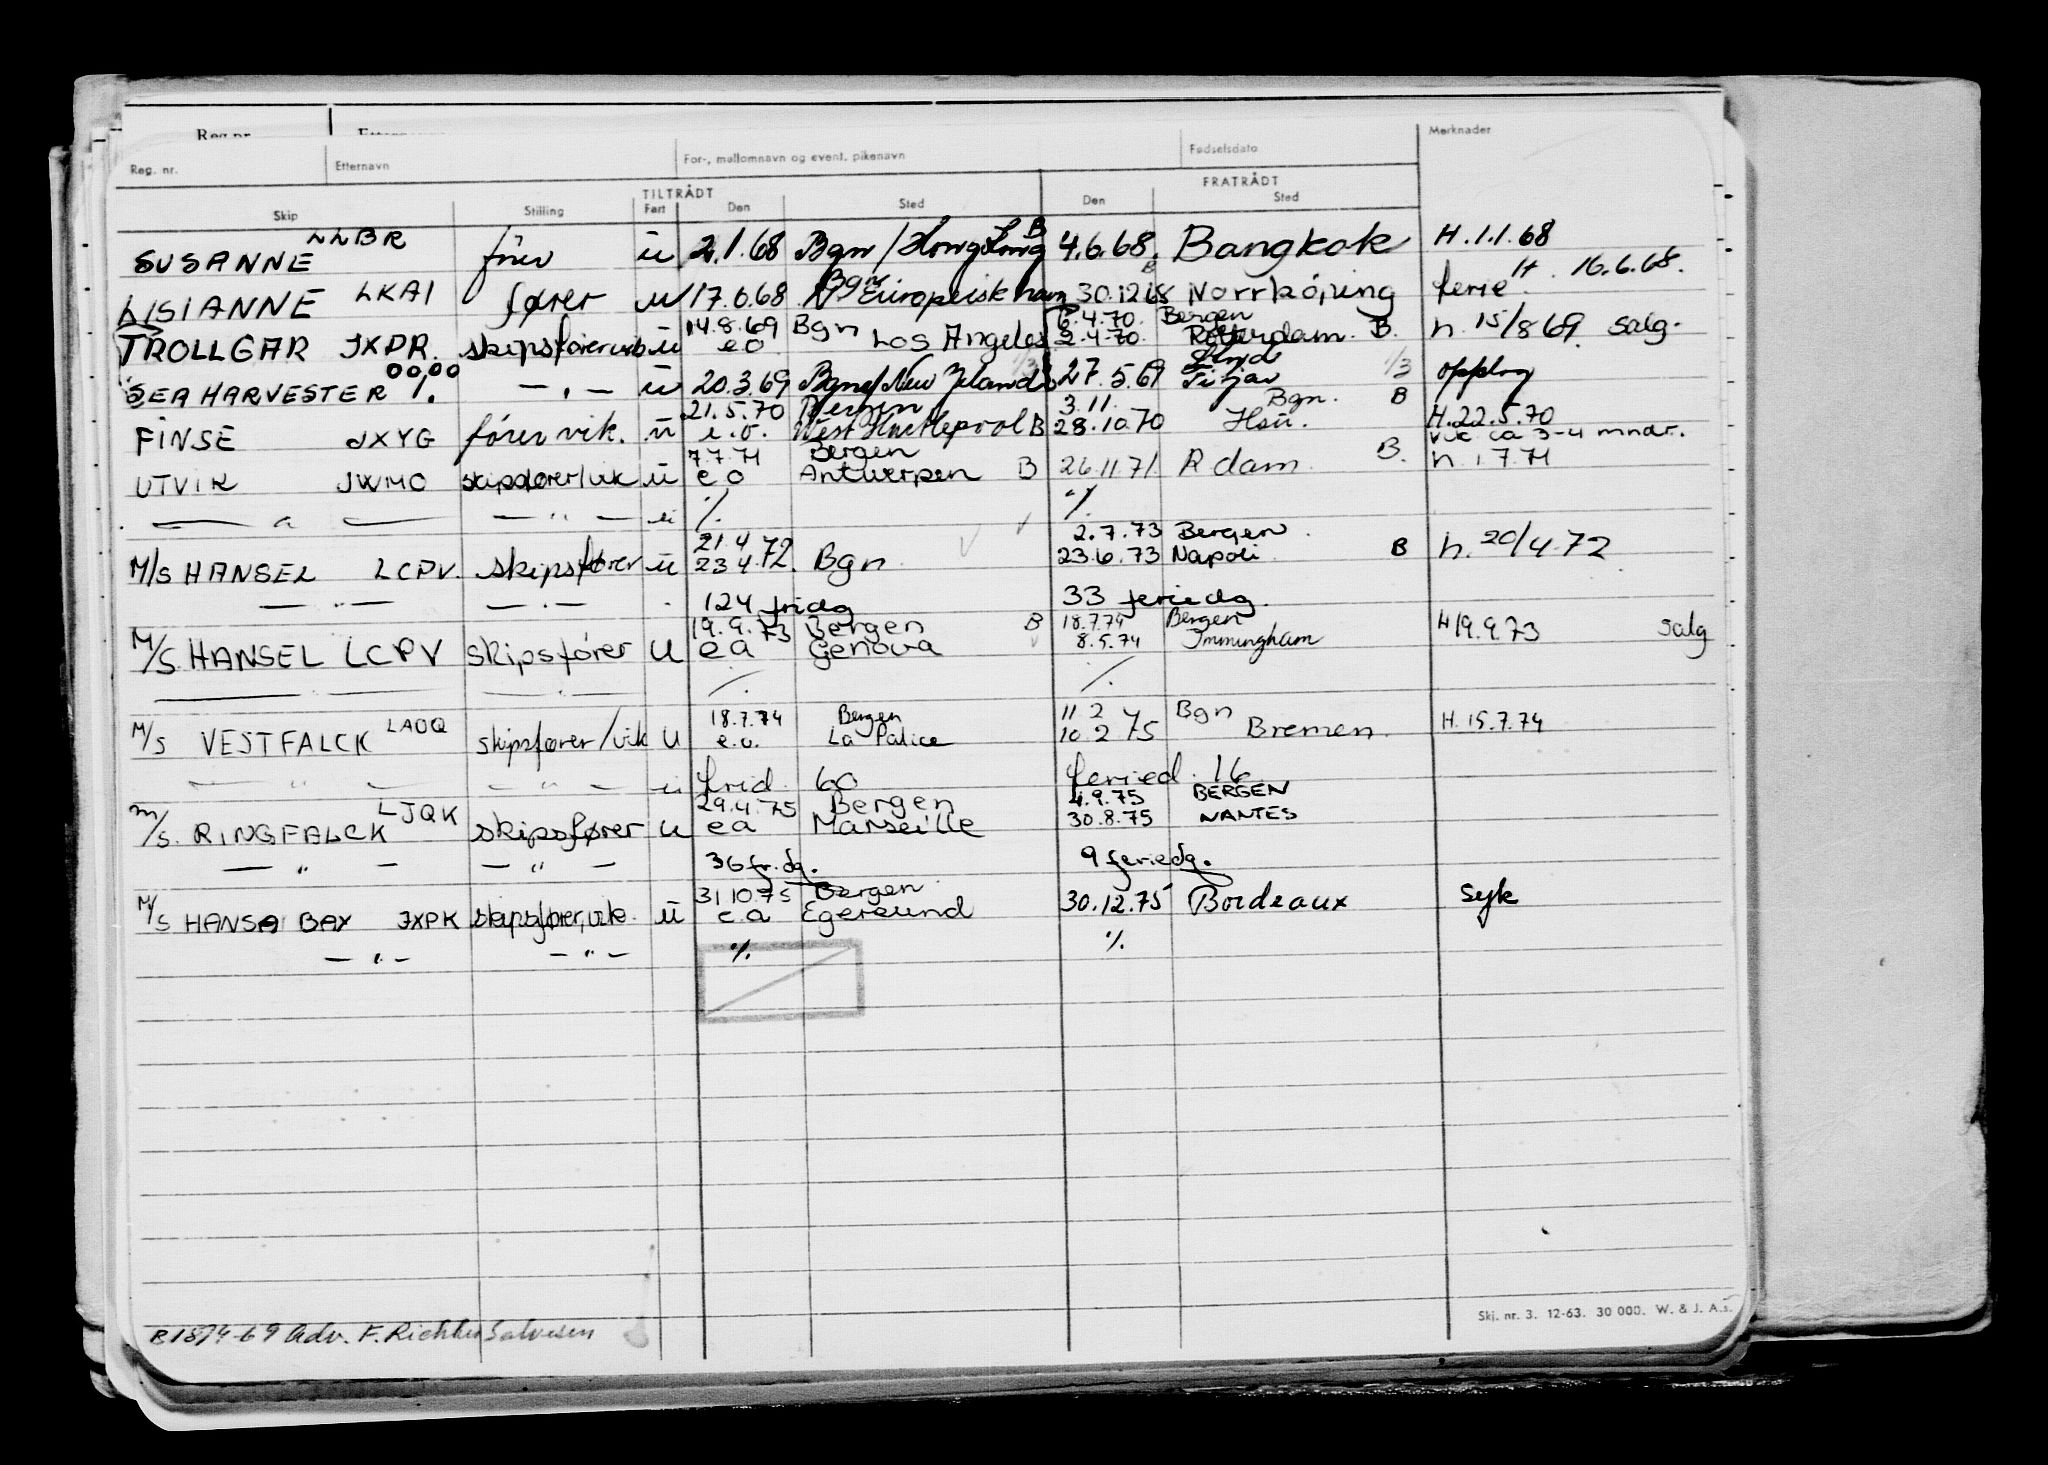 Reg. nr. Etternavn For-, mellomnavn og event. pikenavn Fødselsdato Merknader
TILTRÅDT FRATRÅDT
Skip Stilling Fart Den Sted Den Sted
SUSANNE LLBR fører u 2.1.68 Bgn / Hong Kong B 4.6.68. Bangkok H.1.1.68
LISIANNE LKAI fører u 17.6.68 Bgn Europeisk havn 30.12.68 B Norrköping ferie H. 16.6.68.
14.8.69 Bgn 6.4.70 Bergen
TROLLGAR JXPR. skipsfører vik u e o Los Angeles 2.4.70. Rotterdam. B. h. 15/8 69 salg.
SEA HARVESTER OOOO %. — " — u 20.3.69 Bgn / New Zeland 1/3 27.5.69 Fitjar 1/3 opplag
21.5.70 Bergen 3.11. Bgn. B H.22.5.70
FINSE JXYG fører vik. u e.o. West Hartlepool B 28.10.70 vik ca 3-4 mndr.
7.7.71 Bergen
UTVIK JWMO skipsfører/vik u e o Antwerpen B 26.11.71. R dam. B. h. 1 7 71
— " — — " — u %. %.
21.4.72 2.7.73 Bergen
M/S HANSEL LCPV. skipsfører u 23.4.72. Bgn 23.6.73 Napoli B h. 20/4 72
— " — — " — 124 fridg 33 feriedg.
19.9.73 Bergen B 18.7.74 Bergen
M/S. HANSEL LCPV skipsfører u e a Genova 8.5.74 Immingham H 19.9.73 salg
— — " — %. %.
18.7.74 Bergen 11 2 Bgn
M/S VESTFALCK LAOQ skipsfører/vik u e.o. La Palice 10.2 75 Bremen. H. 15.7.74
— " — — " — u frid. 60 feried. 16
29.4.75 Bergen 4.9.75 BERGEN
m/s. RINGFALCK LJQK skipsfører u e a Marseille 30.8.75 NANTES
— " — — " — 36 fr. dg. 9 feriedg.
31 10.75 Bergen
M/S HANSA BAY JXPK skipsfører, vik. u e a Egersund 30.12.75 Bordeaux syk
— " — — " — %. %.
Skj. nr. 3. 12-63. 30 000. W. & J. A.s.
B1874-69 Adv. F. Richter Salvesen